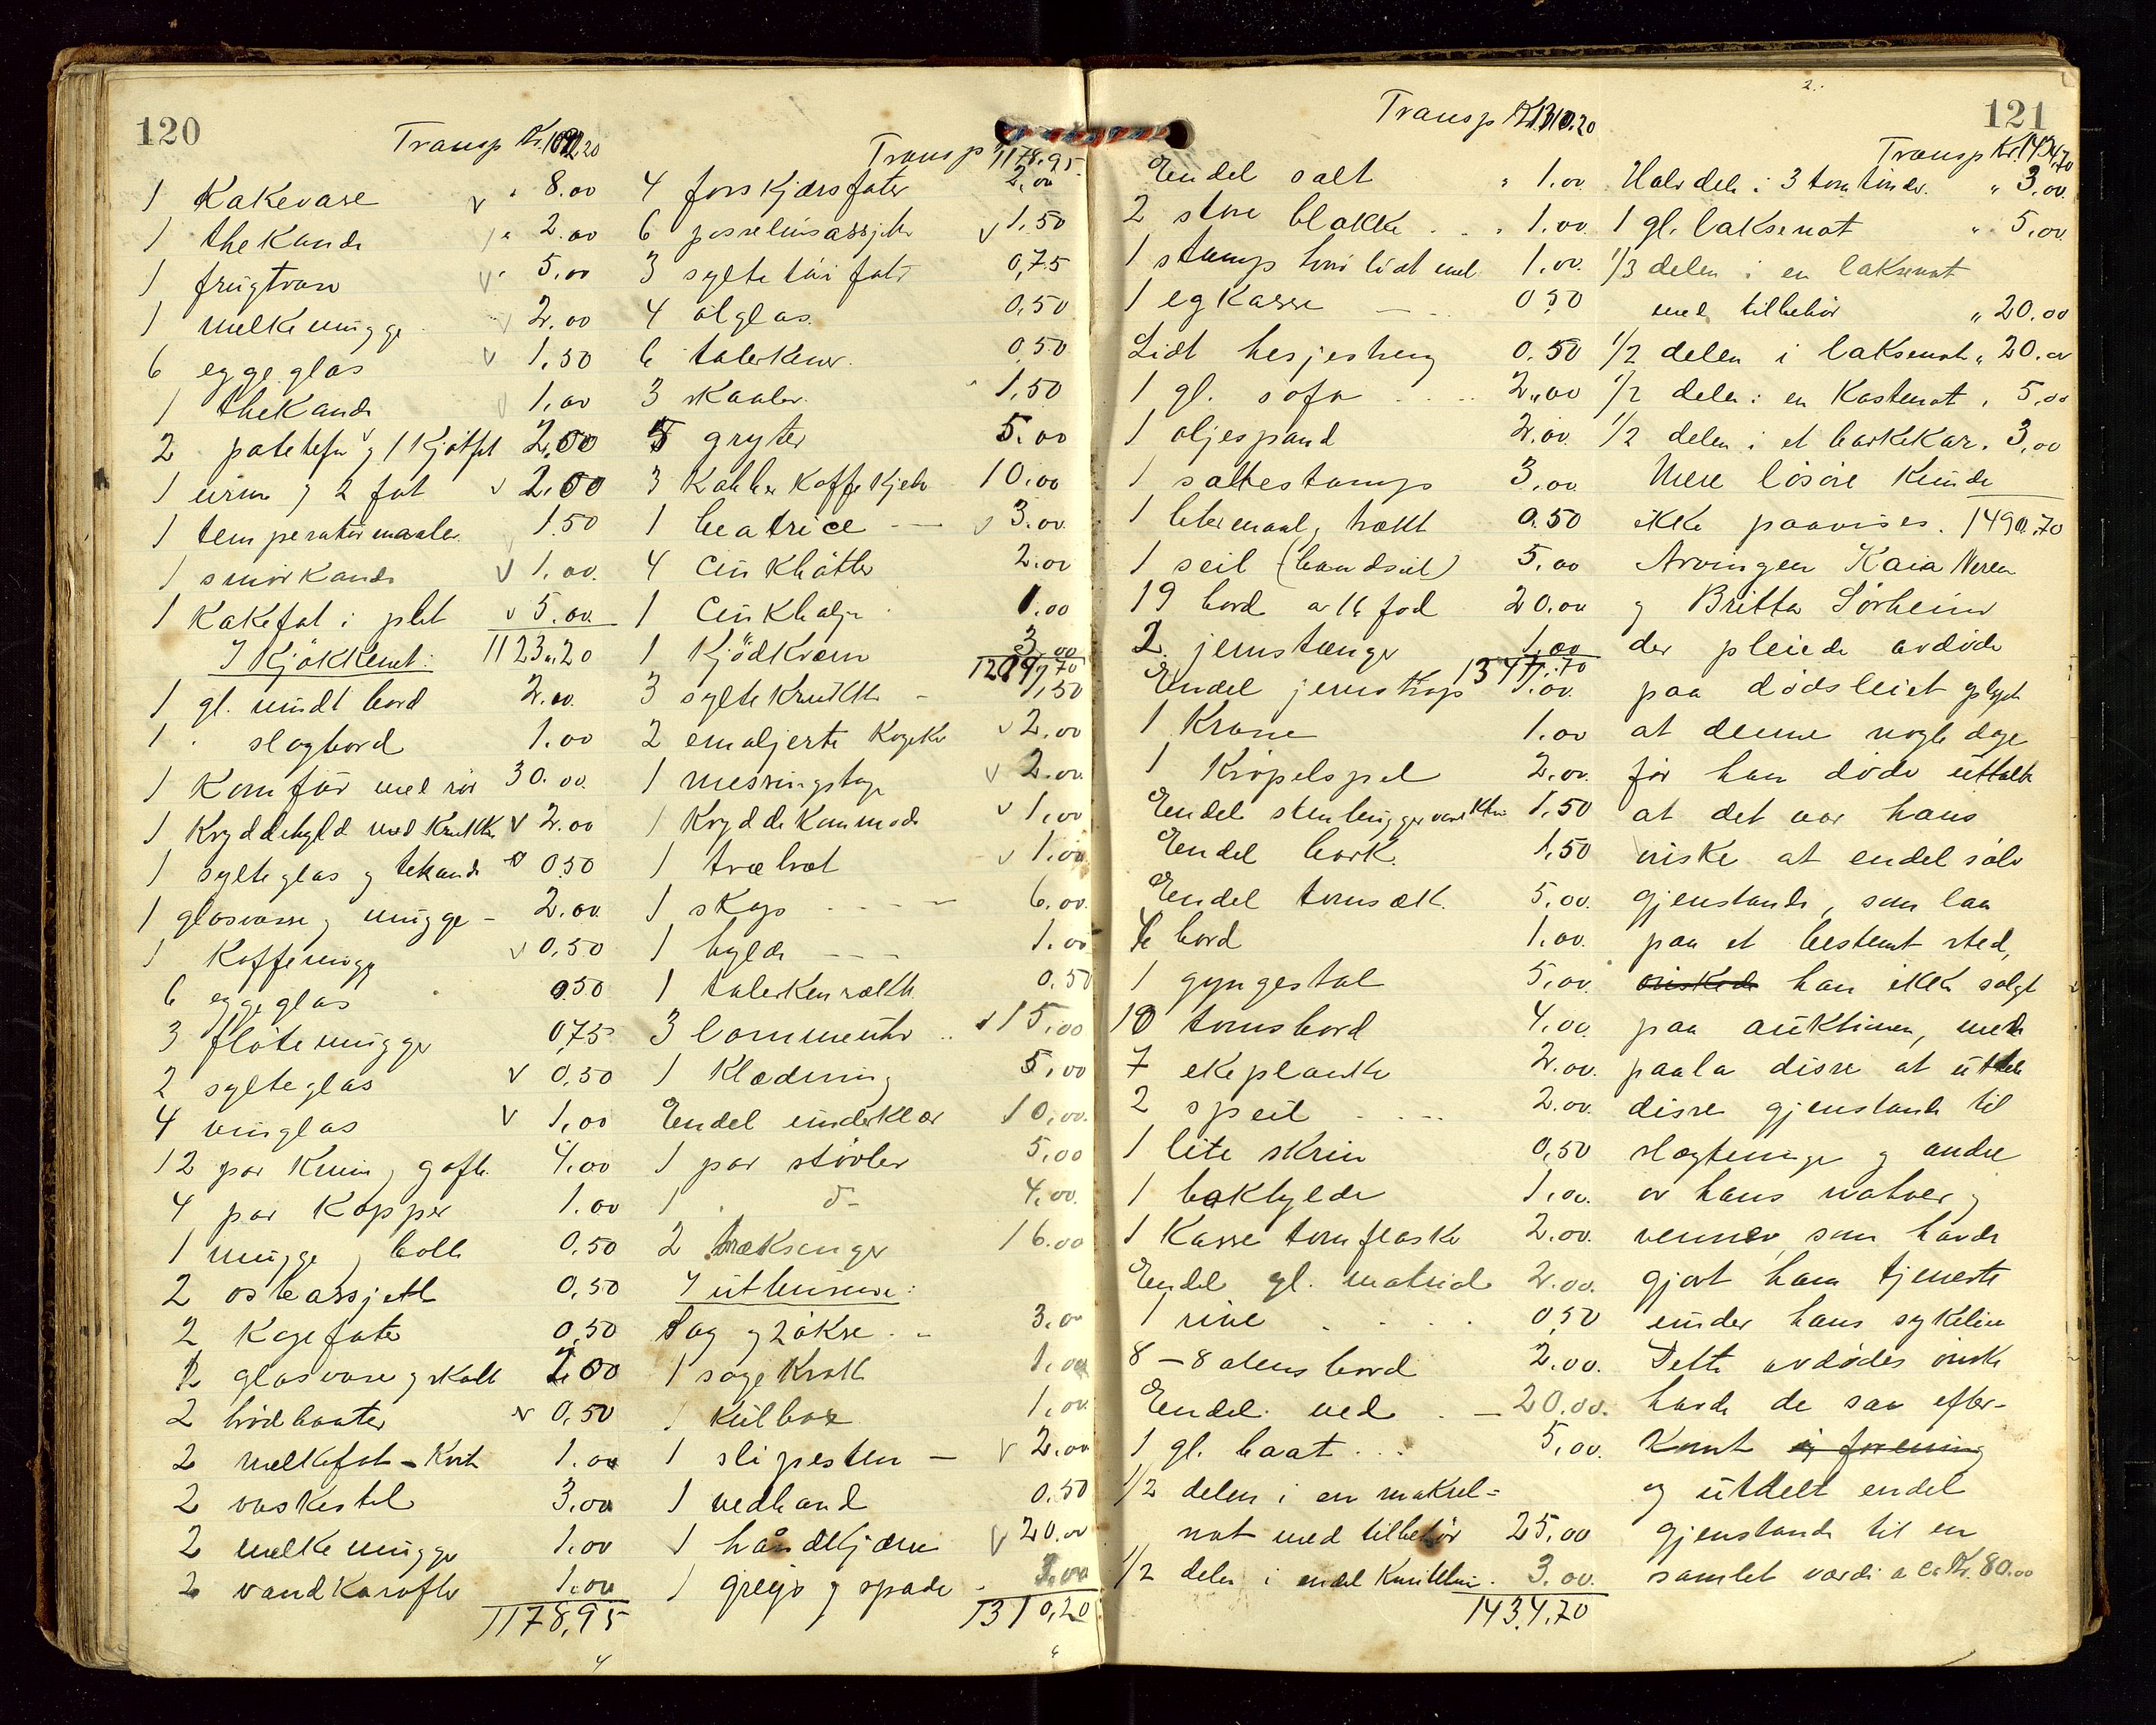 120
Transp Kr. 1092.20
1 Kakevase " 8.00
1 thekande " 2.00
1 frugtvase " 5.00
1 melkemugge 2.00
6 eggeglas 1,50
1 thekande 1,00
2 1 Kjøtfat 2,00
1 urne og 2 fat 2.00
1 temperaturmaaler 1.50
1 smørkande 1.00.
1 Kakefat i plet 5.00.
1123,20
I Kjøkkenet:
1 gl. rundt bord 2.00.
1 " slagbord 1.00
1 Komfür med rør 30.00.
1 Kryddehyld med Krukker 2.00
1 sylteglas og tekande 0.50
1 glasvase og mugge - 2.00.
1 Kaffemugge 0,50
6 eggeglas 0.50
3 fløtemugger 0,75
2 sylteglas 0,50
4 vinglas 1,00
12 par Kniv og gafle. 4,00
4 par Kopper 1.00
1 mugge og bolle 0,50
2 osteassjett 0,50
2 Kagefate 0,50
2 glasvase og skaal 1.00
2 brødbaater 0,50
2 melkefat - Kvit 1.00
2 vaskestel 3,00
2 melkemugge 1.00
2 vandkarafle 1.00
1178,95
Transp 1178,95
4 forskjærsfater 2,00
6 posselinsassjetter 1,50
3 syltetøifate 0,75
4 ølglas. 0,50
6 talerkener. 0,50
3 skaaler. 1,50
5 gryter 5.00
3 Kobber Kaffekjele 10.00
1 beatrice 3.00.
4 Cinkbøtter 2.00
1 Cinkbalje 1.00
1 Kjødkvern 3,00
1209,70
3 syltekrukker - 1,50
2 emaljerte Kagek 2,00
1 messingstage 2.00.
1 Kryddekommode 1,00
1 træbræt 1.00
1 skap 6.00.
1 hylde 1.00
1 talerkenrække 0,50
3 lommeuhr 15,00
1 Klædning 5,00
Endel underklær 10,00.
1 par støvler 5,00
1 " do 4,00.
2 træksenger 16.00
I uthusene:
Sag og 2 økse 3.00
1 sagekrak 1.00
1 Kulbox 1,00.
1 slipesten - 2.00
1 vedhand 0.50
1 håndkjærre 20.00
1 greip og spade 3.00
1310,20
121
Transp Kr. 1310.20
Endel salt " 1.00
2 store blakke " 1.00.
1 stamp hvori lidt mel 1,00.
1 eg Kasse 0,50
Lidt hesjestreng 0.50
1 gl. sofa 2,00
1 oljespand 2.00.
1 saltestamp 3,00.
1 litermaal og trakt 0.50
1 seil (baadseil) 5.00
19 bord a 16 fod 20.00
2 jernstænger 1,00
1347,70
Endel jernskrap 1.00.
1 Krane 1.00
1 Krøpelspel 2.00.
Endel 1,50
Endel bark. 1,50
Endel tomsæk. 5.00.
4 bord 1.00.
1 gyngestol 5.00.
10 tomsbord 4.00.
7 ekeplanke 2.00.
2 speil 2.00.
1 lite skrin 0,50
1 bakhylde 1.00.
1 Kasse tomflaske 2.00.
Endel gl. matrial 2.00.
1 rive 0,50
8 - 8 alens bord 2.00.
Endel ved - 20.00.
1 gl. baat 5,00.
1/2 delen i en makrel=
not med tilbehør 25,00
1/2 delen i endel 3.00.
1434,70
Transp Kr. 1434,70
Halvdelen i 3 tomtønder. " 3.00.
1 gl. laksenot " 5,00.
1/3 delen i en laksenot
med tilbehør " 20.00
1/2 delen i laksenot " 20.00
1/2 delen i en Kastenot " 5,00
1/2 delen i et barkekar. 3,00
Mere løsøre Kunde
ikke paavises. 1490.70
Arvingen Kaia Neren
og Britta Sørheim
der pleiede avdøde
paa dødsleiet oplyste
at denne nogle dage
før han døde uttalte
at det var hans
ønske at endel sølv
gjenstande, som laa
paa et bestemt sted,
ønskede han ikke solgt
paa auktionen, men
paala disse at utdele
disse gjenstande til
slægtninge og andre
av hans naboer og
venner, som havde
gjort ham tjeneste
under hans sykeleie
Dette avdødes ønske
havde de saa efter-
komt i forening
og utdelt endel
gjenstande til en
samlet værdi a ca Kr. 80.00